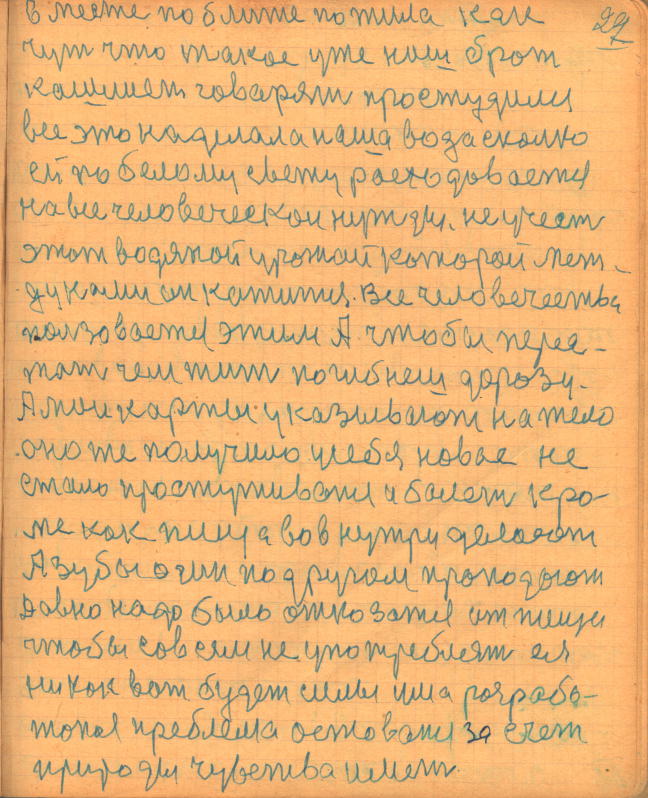 27
вместе по ближе пожила как
чут что такое уже наш брат
кашлиет говарят простудилис
все это наделала наша вода сколко
ей по белому свету расходовается
на все человеческои нужды. не учест
этот водяной урожай которой меж-
ду нами он катится. Все человечества
ползовается этим А чтобы перес-
тат чем жит погибнеш дорогу.
А мои карты указывают на тело
оно же получило у себя новое не
стало простуживатся и болет кро-
ме как пища вовнутри делоют
А зубы один по другом пропадают
Давно надо было отказатся от пищи
чтобы совсем не употреблят ея
никак вот будет силы има разрабо-
таная преблема остоватся за счет
природы чувства имет